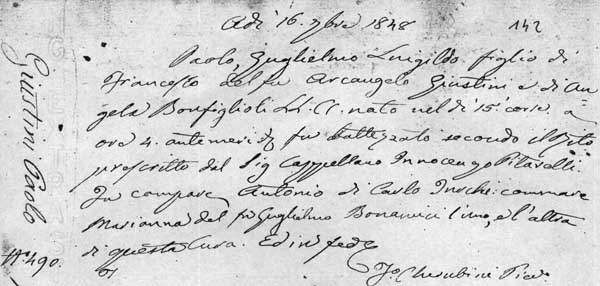 Adì 16. 9bre 1848
142
Paolo, Guglielmo Luigildo figlio di
Francesco del fu Arcangelo Giustini e di An-
gela Bonfiglioli LL: CC. nato nel dì 15. corre. a
ore 4. antemerid. fu battezzato secondo il Rito
prescritto dal Sig Cappellano Innocenzo Pitarelli.
Fu compare Antonio di Carlo commare
Marianna del fu Guglielmo Bonanni l'uno, e l'altra
di questa Cura. Ed in fede
Cherubini
Giustini Paolo
No. 490.